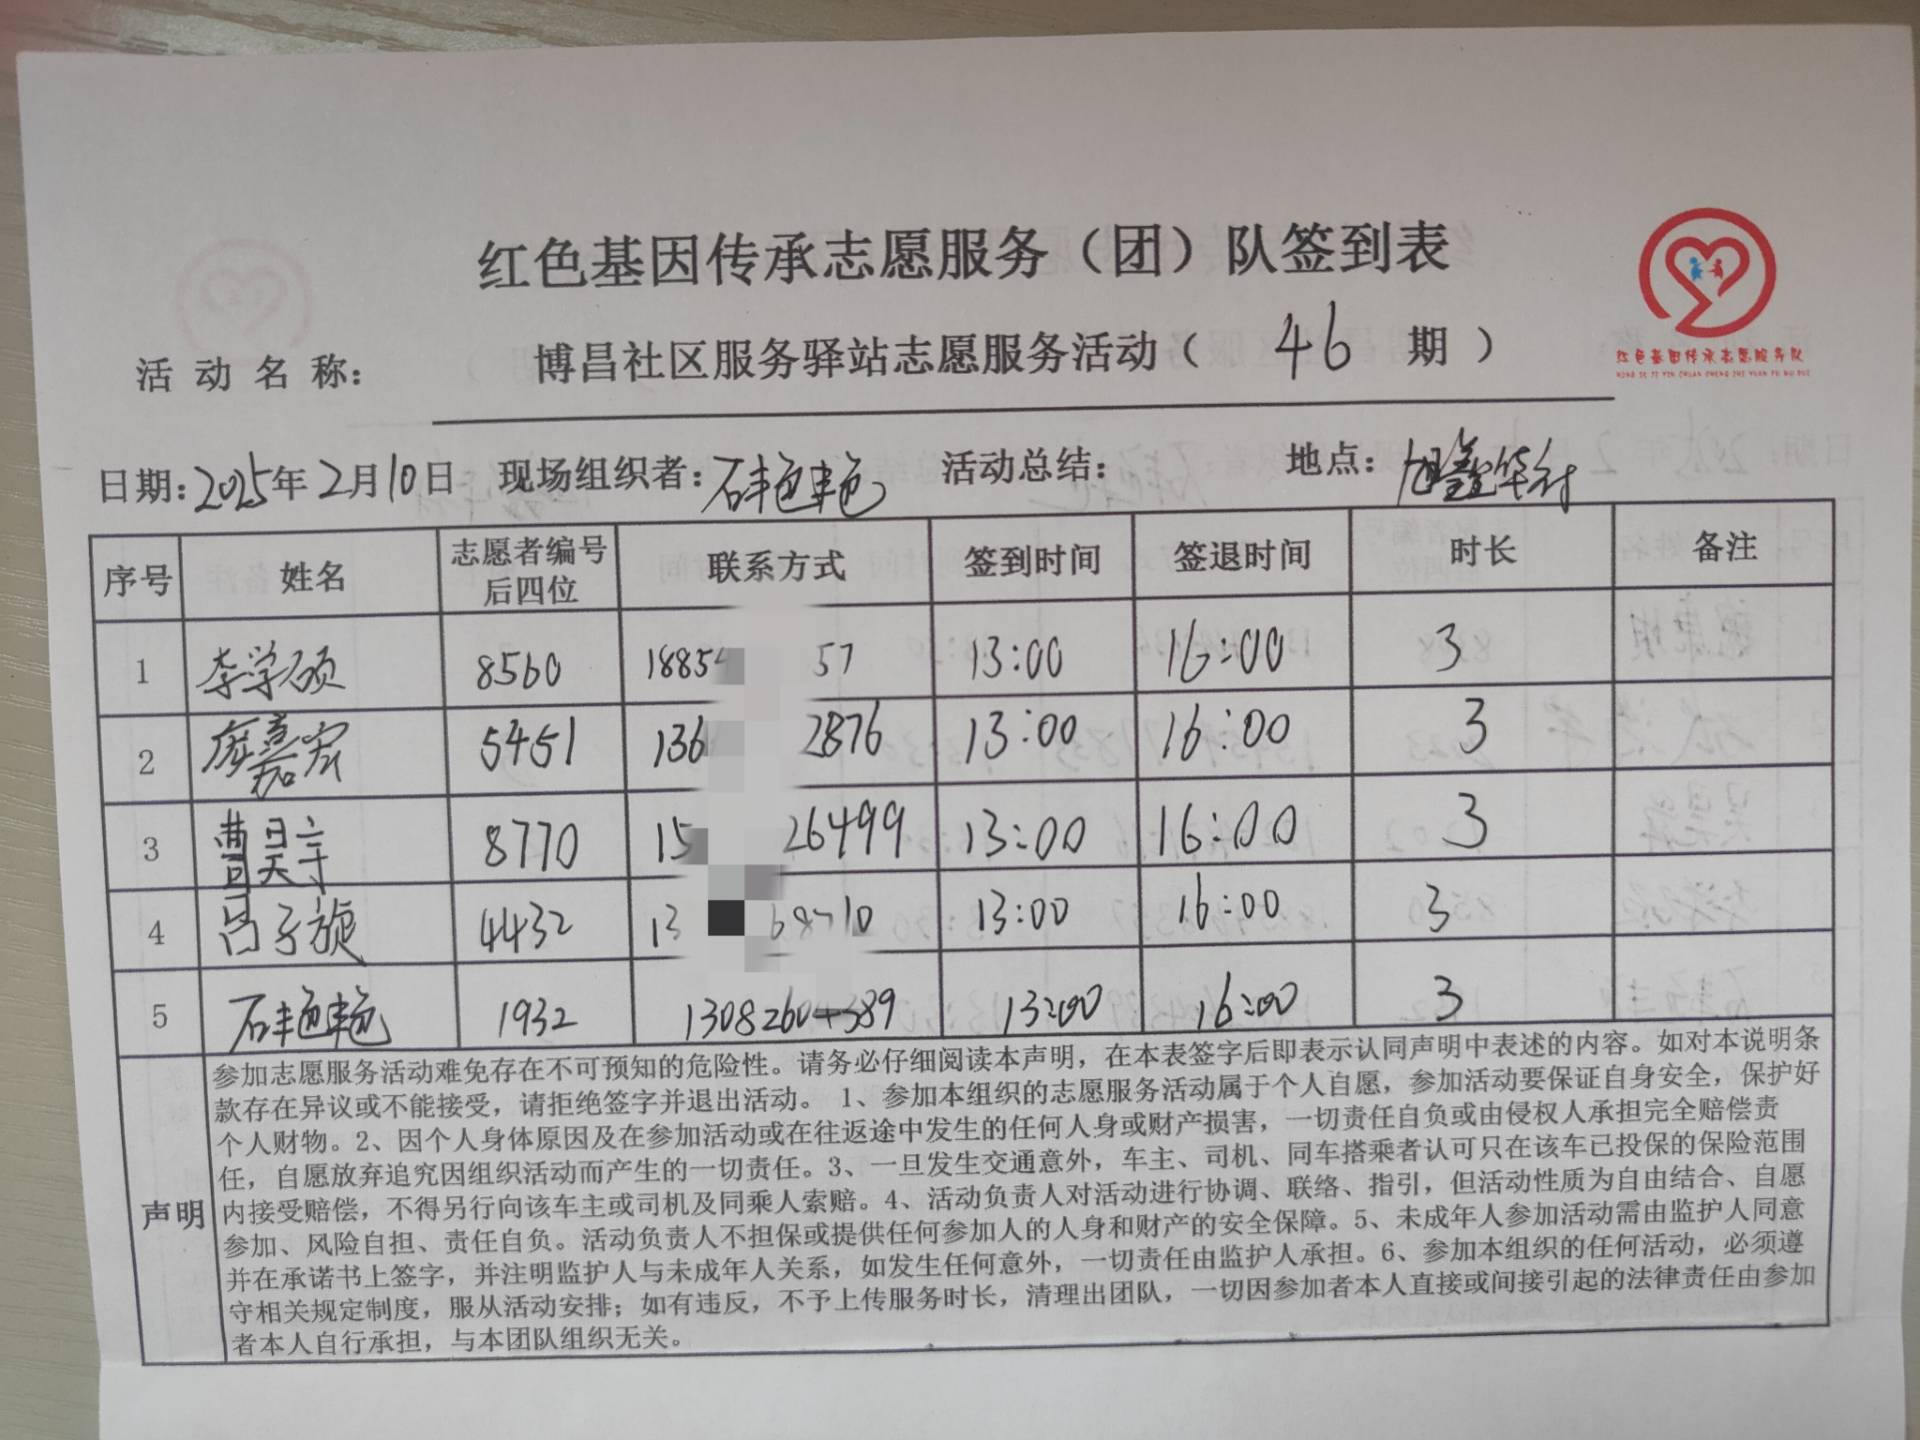 红色基因传承志愿服务（团）队签到表
活动名称： 博昌社区服务驿站志愿服务活动（ 46 期 ）
红色基因传承志愿服务队
HONG SE JI YIN CHUAN CHENG ZHI YUAN FU WU DUI
日期：2025年2月10日 现场组织者：石艳艳 活动总结： 地点：
序号 姓名 志愿者编号后四位 联系方式 签到时间 签退时间 时长 备注
1 李学硕 8560 1885 57 13:00 16:00 3
2 5451 136 2876 13:00 16:00 3
3 曹昊宇 8770 15 26499 13:00 16:00 3
4 吕子旋 4432 13 10 13:00 16:00 3
5 石艳艳 1932 13082604389 13:00 16:00 3
声明
参加志愿服务活动难免存在不可预知的危险性。请务必仔细阅读本声明，在本表签字后即表示认同声明中表述的内容。如对本说明条
款存在异议或不能接受，请拒绝签字并退出活动。 1、参加本组织的志愿服务活动属于个人自愿，参加活动要保证自身安全，保护好
个人财物。2、因个人身体原因及在参加活动或在往返途中发生的任何人身或财产损害，一切责任自负或由侵权人承担完全赔偿责
任，自愿放弃追究因组织活动而产生的一切责任。3、一旦发生交通意外，车主、司机、同车搭乘者认可只在该车已投保的保险范围
内接受赔偿，不得另行向该车主或司机及同乘人索赔。4、活动负责人对活动进行协调、联络、指引，但活动性质为自由结合、自愿
参加、风险自担、责任自负。活动负责人不担保或提供任何参加人的人身和财产的安全保障。5、未成年人参加活动需由监护人同意
并在承诺书上签字，并注明监护人与未成年人关系，如发生任何意外，一切责任由监护人承担。6、参加本组织的任何活动，必须遵
守相关规定制度，服从活动安排；如有违反，不予上传服务时长，清理出团队，一切因参加者本人直接或间接引起的法律责任由参加
者本人自行承担，与本团队组织无关。